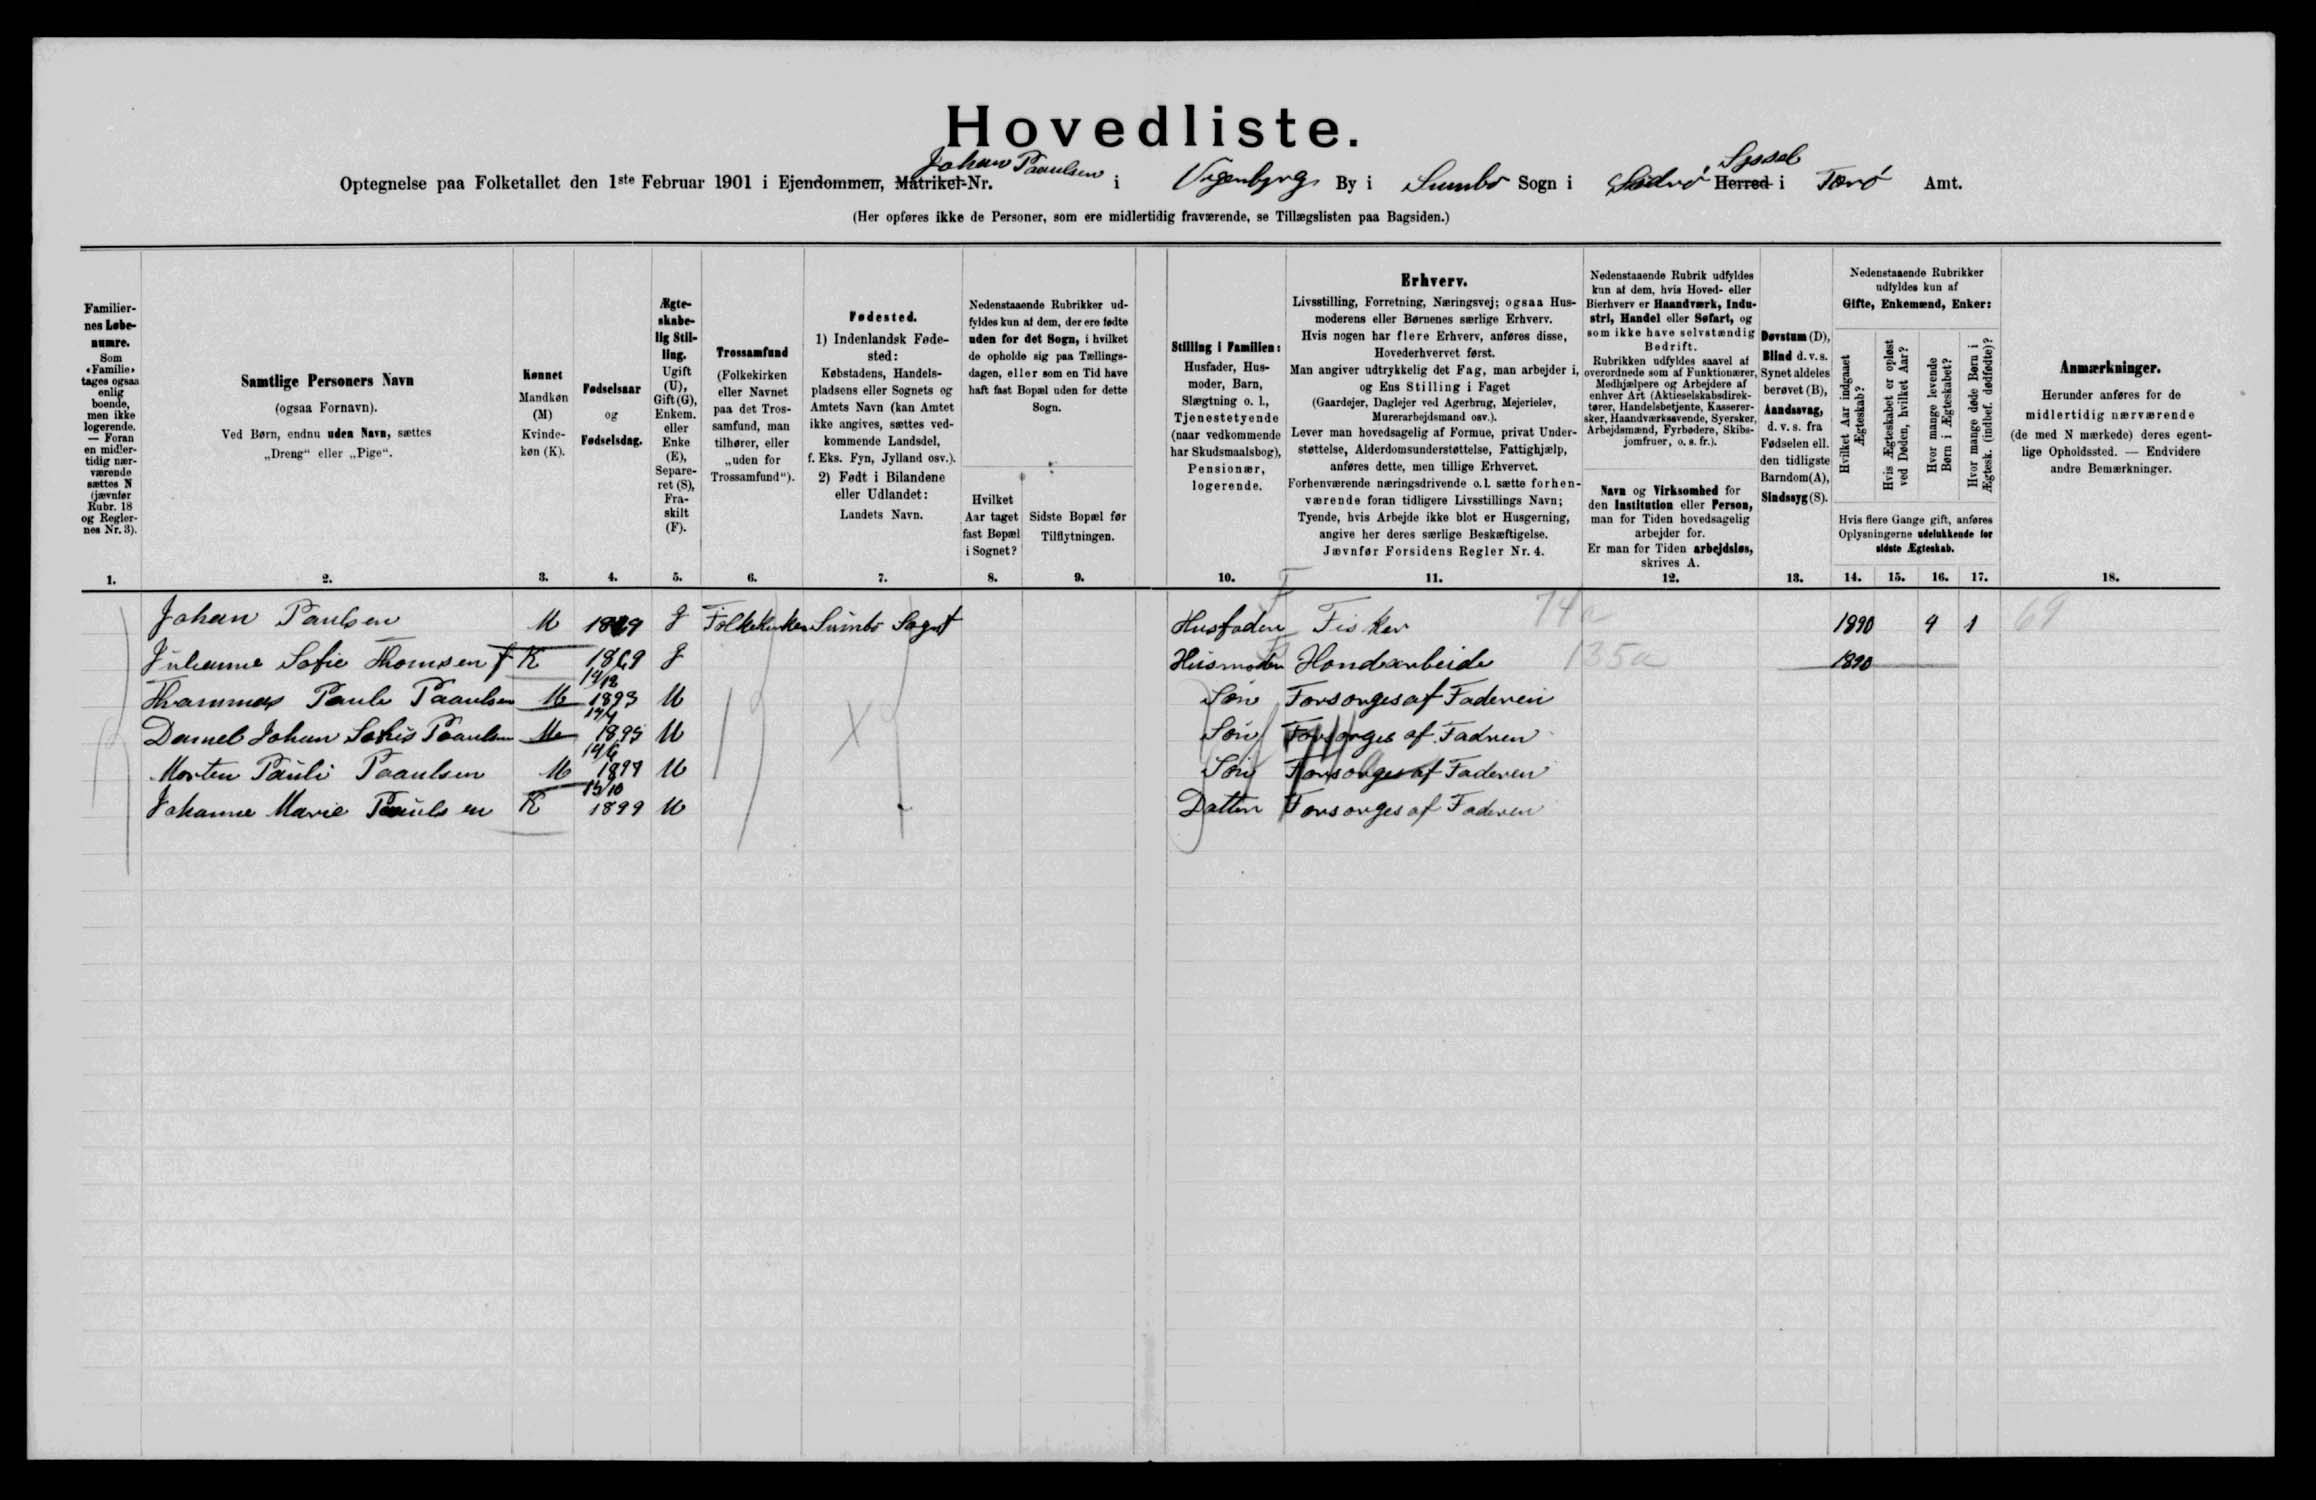 Hovedliste.
Optegnelse paa Folketallet den 1ste Februar 1901 i Ejendommen, Matrikel-Nr. Johan Paaulsen i Vigenbyrg By i Sumbø Sogn i Suderø Herred Syssel i Færø Amt.
(Her opføres ikke de Personer, som ere midlertidig fraværende, se Tillægslisten paa Bagsiden.)
Familiernes Løbenumre.
Som «Familie» tages ogsaa enlig boende, men ikke logerende. — Foran en midlertidig nærværende sættes N (jævnfør Rubr. 18 og Reglernes Nr. 3).
Samtlige Personers Navn
(ogsaa Fornavn).
Ved Børn, endnu uden Navn, sættes
„Dreng“ eller „Pige“.
Kønnet
Mandkøn (M)
Kvindekøn (K).
Fødselsaar
og
Fødselsdag.
Ægteskabelig Stilling.
Ugift (U), Gift (G), Enkem. eller Enke (E), Separeret (S), Fraskilt (F).
Trossamfund
(Folkekirken eller Navnet paa det Trossamfund, man tilhører, eller „uden for Trossamfund“).
Fødested.
1) Indenlandsk Fødested:
Købstadens, Handelspladsens eller Sognets og Amtets Navn (kan Amtet ikke angives, sættes vedkommende Landsdel, f. Eks. Fyn, Jylland osv.).
2) Født i Bilandene eller Udlandet:
Landets Navn.
Nedenstaaende Rubrikker udfyldes kun af dem, der ere fødte uden for det Sogn, i hvilket de opholde sig paa Tællingsdagen, eller som en Tid have haft fast Bopæl uden for dette Sogn.
Hvilket Aar taget fast Bopæl i Sognet?
Sidste Bopæl før Tilflytningen.
Stilling i Familien:
Husfader, Husmoder, Barn, Slægtning o. l., Tjenestetyende (naar vedkommende har Skudsmaalsbog), Pensionær, logerende.
Erhverv.
Livsstilling, Forretning, Næringsvej; ogsaa Husmoderens eller Børnenes særlige Erhverv.
Hvis nogen har flere Erhverv, anføres disse, Hovederhvervet først.
Man angiver udtrykkelig det Fag, man arbejder i, og Ens Stilling i Faget
(Gaardejer, Daglejer ved Agerbrug, Mejerielev, Murerarbejdsmand osv.).
Lever man hovedsagelig af Formue, privat Understøttelse, Alderdomsunderstøttelse, Fattighjælp, anføres dette, men tillige Erhvervet.
Forhenværende næringsdrivende o. l. sætte forhenværende foran tidligere Livsstillings Navn;
Tyende, hvis Arbejde ikke blot er Husgerning, angive her deres særlige Beskæftigelse.
Jævnfør Forsidens Regler Nr. 4.
Nedenstaaende Rubrik udfyldes kun af dem, hvis Hoved- eller Bierhverv er Haandværk, Industri, Handel eller Søfart, og som ikke have selvstændig Bedrift.
Rubrikken udfyldes saavel af overordnede som af Funktionærer, Medhjælpere og Arbejdere af enhver Art (Aktieselskabsdirektører, Handelsbetjente, Kasserersker, Haandværkssvende, Syersker, Arbejdsmænd, Fyrbødere, Skibsjomfruer, o. s. fr.).
Navn og Virksomhed for den Institution eller Person, man for Tiden hovedsagelig arbejder for.
Er man for Tiden arbejdsløs, skrives A.
Døvstum (D), Blind d. v. s. Synet aldeles berøvet (B), Aandssvag, d. v. s. fra Fødselen ell. den tidligste Barndom (A), Sindssyg (S).
Nedenstaaende Rubrikker udfyldes kun af
Gifte, Enkemænd, Enker:
Hvilket Aar indgaaet Ægteskab?
Hvis Ægteskabet er opløst ved Døden, hvilket Aar?
Hvor mange levende Børn i Ægteskabet?
Hvor mange døde Børn i Ægtesk. (indbef. dødfødte)?
Hvis flere Gange gift, anføres Oplysningerne udelukkende for sidste Ægteskab.
Anmærkninger.
Herunder anføres for de midlertidig nærværende (de med N mærkede) deres egentlige Opholdssted. — Endvidere andre Bemærkninger.
1. 2. 3. 4. 5. 6. 7. 8. 9. 10. 11. 12. 13. 14. 15. 16. 17. 18.
Johan Paulsen M G Folkekirken Sumbø Sogn Husfader Fisker 74a 1890 4 1 69
Julianne Sofie Thomsen K 1869 G Husmoder Hondearbeide 135a 1890
Thammas Paule Paaulsen M 14/12 1893 U Søn Forsorges af Faderen
Daniel Johan Paaulsen M 1895 U Søn Forsorges af Fadren
Morten Pauli Paaulsen M 14/6 1897 U Søn Forsorges af Faderen
Johanne Marie Paulsen K 13/10 1899 U Datter Forsorges af Faderen